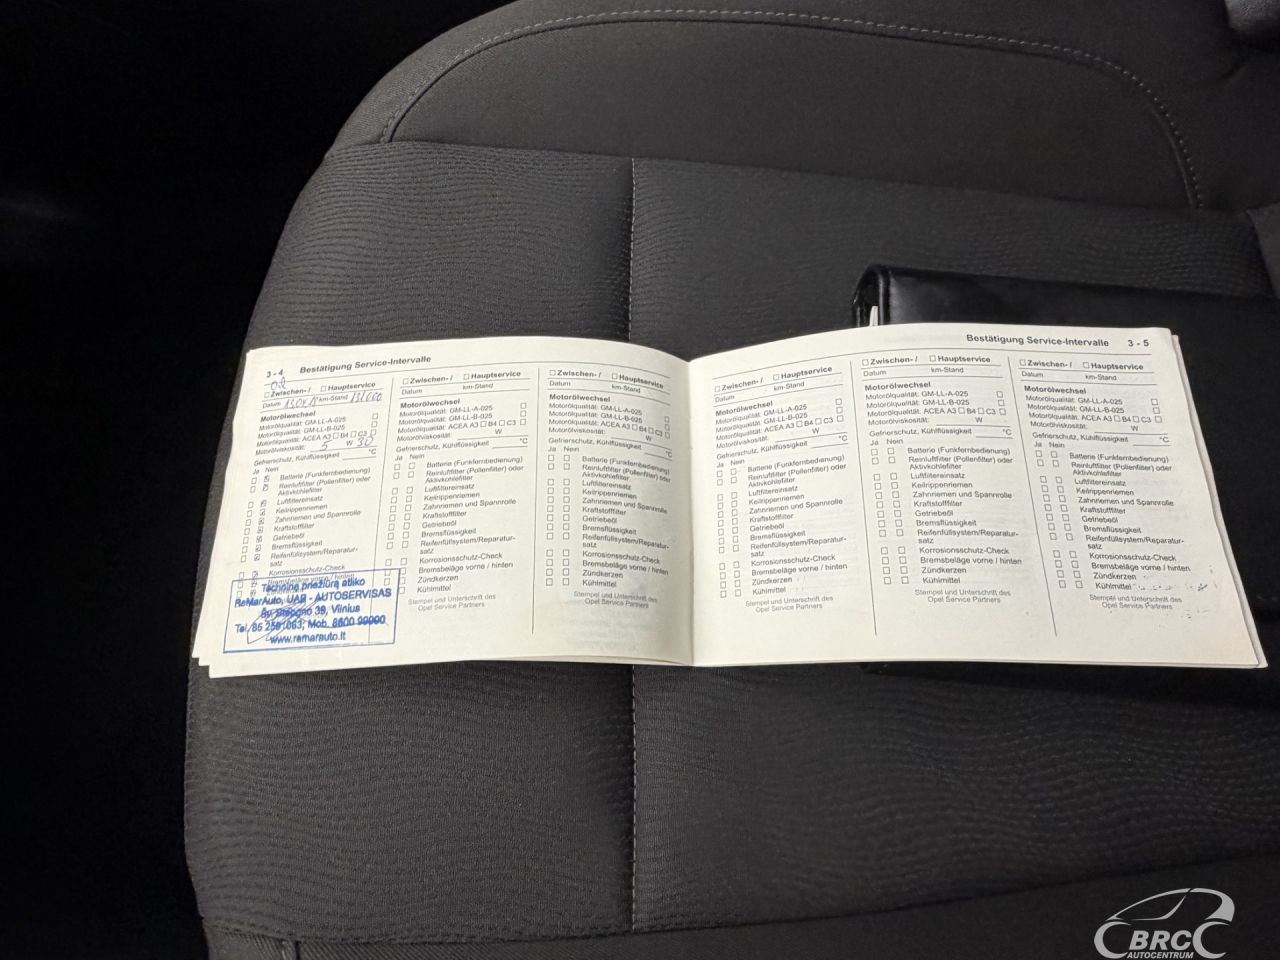 3 - 4 Bestätigung Service-Intervalle
Zwischen- / Hauptservice
Datum km-Stand 131000
Motorölwechsel
Motorölqualität: GM-LL-A-025
Motorölqualität: GM-LL-B-025
Motorölqualität: ACEA A3 B4 C3
Motorölviskosität: 5 W 30
Gefrierschutz, Kühlflüssigkeit °C
Ja Nein
Batterie (Funkfernbedienung)
Reinluftfilter (Pollenfilter) oder
Aktivkohlefilter
Luftfiltereinsatz
Keilrippenriemen
Zahnriemen und Spannrolle
Kraftstoffilter
Getriebeöl
Bremsflüssigkeit
Reifenfüllsystem/Reparatur-
satz
Korrosionsschutz-Check
Bremsbeläge vorne / hinten
Techninę priežiūrą atliko
ReMarAuto, UAB - AUTOSERVISAS
39, Vilnius
www.remarauto.lt
Zwischen- / Hauptservice
Datum km-Stand
Motorölwechsel
Motorölqualität: GM-LL-A-025
Motorölqualität: GM-LL-B-025
Motorölqualität: ACEA A3 B4 C3
Motorölviskosität: W
Gefrierschutz, Kühlflüssigkeit °C
Ja Nein
Batterie (Funkfernbedienung)
Reinluftfilter (Pollenfilter) oder
Aktivkohlefilter
Luftfiltereinsatz
Keilrippenriemen
Zahnriemen und Spannrolle
Kraftstoffilter
Getriebeöl
Bremsflüssigkeit
Reifenfüllsystem/Reparatur-
satz
Korrosionsschutz-Check
Bremsbeläge vorne / hinten
Zündkerzen
Kühlmittel
Stempel und Unterschrift des
Opel Service Partners
Zwischen- / Hauptservice
Datum km-Stand
Motorölwechsel
Motorölqualität: GM-LL-A-025
Motorölqualität: GM-LL-B-025
Motorölqualität: ACEA A3 B4 C3
Motorölviskosität: W
Gefrierschutz, Kühlflüssigkeit °C
Ja Nein
Batterie (Funkfernbedienung)
Reinluftfilter (Pollenfilter) oder
Aktivkohlefilter
Luftfiltereinsatz
Keilrippenriemen
Zahnriemen und Spannrolle
Kraftstoffilter
Getriebeöl
Bremsflüssigkeit
Reifenfüllsystem/Reparatur-
satz
Korrosionsschutz-Check
Bremsbeläge vorne / hinten
Zündkerzen
Kühlmittel
Stempel und Unterschrift des
Opel Service Partners
Bestätigung Service-Intervalle 3 - 5
Zwischen- / Hauptservice
Datum km-Stand
Motorölwechsel
Motorölqualität: GM-LL-A-025
Motorölqualität: GM-LL-B-025
Motorölqualität: ACEA A3 B4 C3
Motorölviskosität: W
Gefrierschutz, Kühlflüssigkeit °C
Ja Nein
Batterie (Funkfernbedienung)
Reinluftfilter (Pollenfilter) oder
Aktivkohlefilter
Luftfiltereinsatz
Keilrippenriemen
Zahnriemen und Spannrolle
Kraftstoffilter
Getriebeöl
Bremsflüssigkeit
Reifenfüllsystem/Reparatur-
satz
Korrosionsschutz-Check
Bremsbeläge vorne / hinten
Zündkerzen
Kühlmittel
Stempel und Unterschrift des
Opel Service Partners
Zwischen- / Hauptservice
Datum km-Stand
Motorölwechsel
Motorölqualität: GM-LL-A-025
Motorölqualität: GM-LL-B-025
Motorölqualität: ACEA A3 B4 C3
Motorölviskosität: W
Gefrierschutz, Kühlflüssigkeit °C
Ja Nein
Batterie (Funkfernbedienung)
Reinluftfilter (Pollenfilter) oder
Aktivkohlefilter
Luftfiltereinsatz
Keilrippenriemen
Zahnriemen und Spannrolle
Kraftstoffilter
Getriebeöl
Bremsflüssigkeit
Reifenfüllsystem/Reparatur-
satz
Korrosionsschutz-Check
Bremsbeläge vorne / hinten
Zündkerzen
Kühlmittel
Stempel und Unterschrift des
Opel Service Partners
Zwischen- / Hauptservice
Datum km-Stand
Motorölwechsel
Motorölqualität: GM-LL-A-025
Motorölqualität: GM-LL-B-025
Motorölqualität: ACEA A3 B4 C3
Motorölviskosität: W
Gefrierschutz, Kühlflüssigkeit °C
Ja Nein
Batterie (Funkfernbedienung)
Reinluftfilter (Pollenfilter) oder
Aktivkohlefilter
Luftfiltereinsatz
Keilrippenriemen
Zahnriemen und Spannrolle
Kraftstoffilter
Getriebeöl
Bremsflüssigkeit
Reifenfüllsystem/Reparatur-
satz
Korrosionsschutz-Check
Bremsbeläge vorne / hinten
Zündkerzen
Kühlmittel
Stempel und Unterschrift des
Opel Service Partners
BRC
AUTOCENTRUM